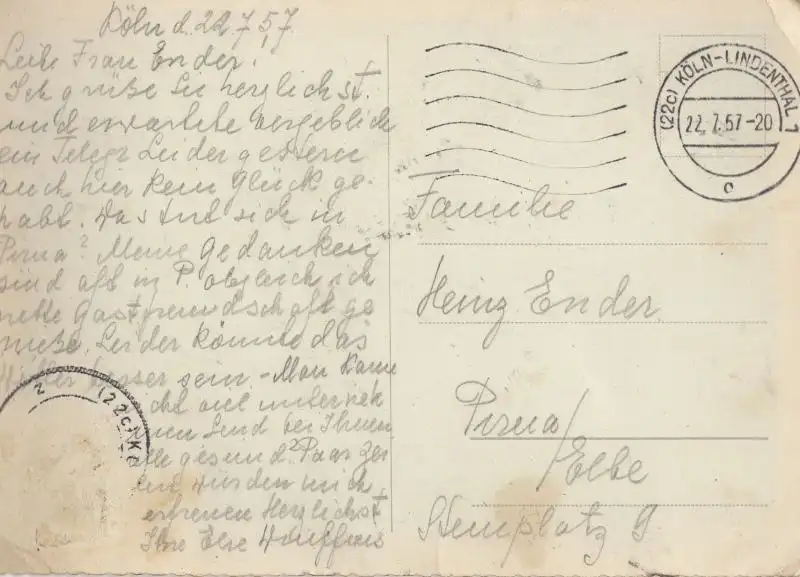 Köln d. 22.7.57
Liebe Frau Ender!
Ich grüße Sie herzlichst.
und erwartete vergeblich
ein Telegr. Leider gestern
auch hier kein Glück ge-
habt. Was tut sich in
Pirna? Meine Gedanken
sind oft in P. obgleich ich
nette Gastfreundschaft ge
nieße. Leider könnte das
besser sein. - Man kann
cht viel unterneh
men Sind bei Ihnen
alle gesund? Paar Zei
len würden mich
erfreuen Herzlichst
Ihre Else
Familie
Heinz Ender
Pirna/
Elbe
9
(22c) KÖLN-LINDENTHAL 1
22.7.57-20
c
(22c) K